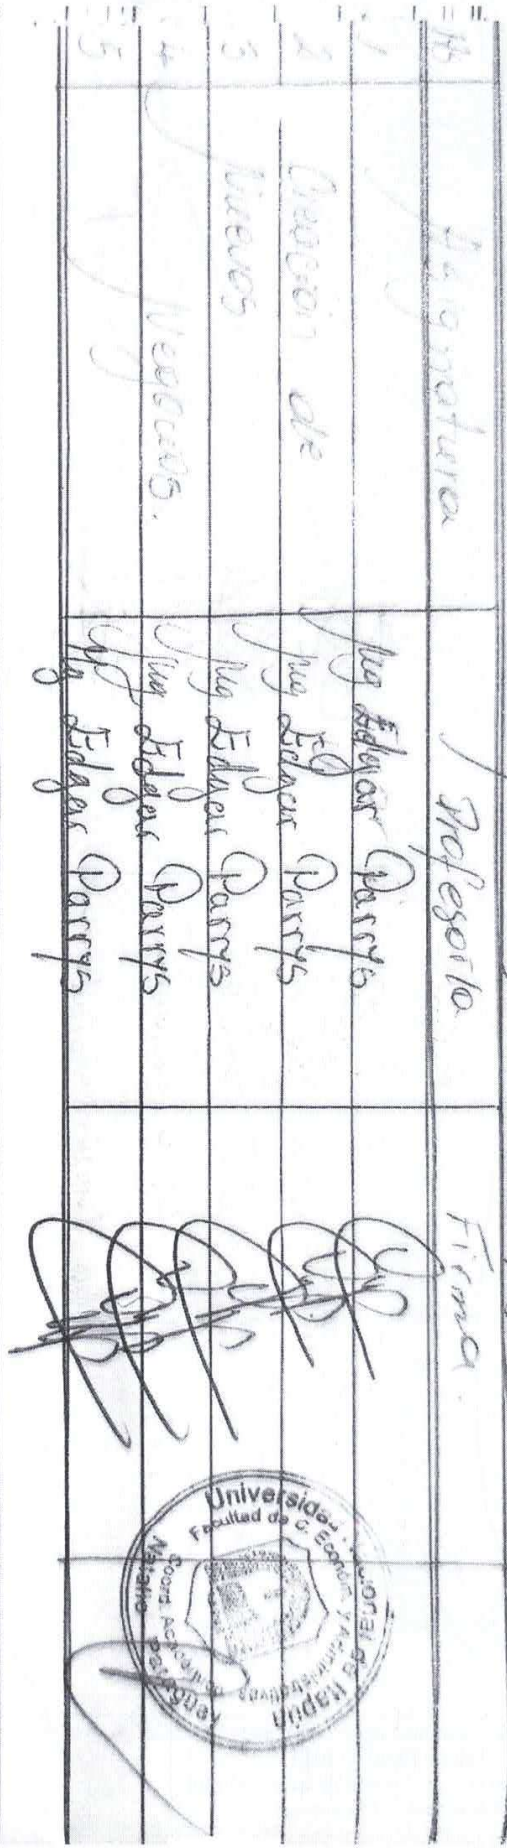 Nº Asignatura Profesor/a Firma.
1 Mg Edgar Parrys
2 Creación de Mg Edgar Parrys
3 Nuevos Mg Edgar Parrys
4 Negocios. Mg Edgar Parrys
5 Mg Edgar Parrys
Universidad Nacional de Itapúa
Facultad de C. Econom. Y Administrativas
Coord. Académica
Natalio